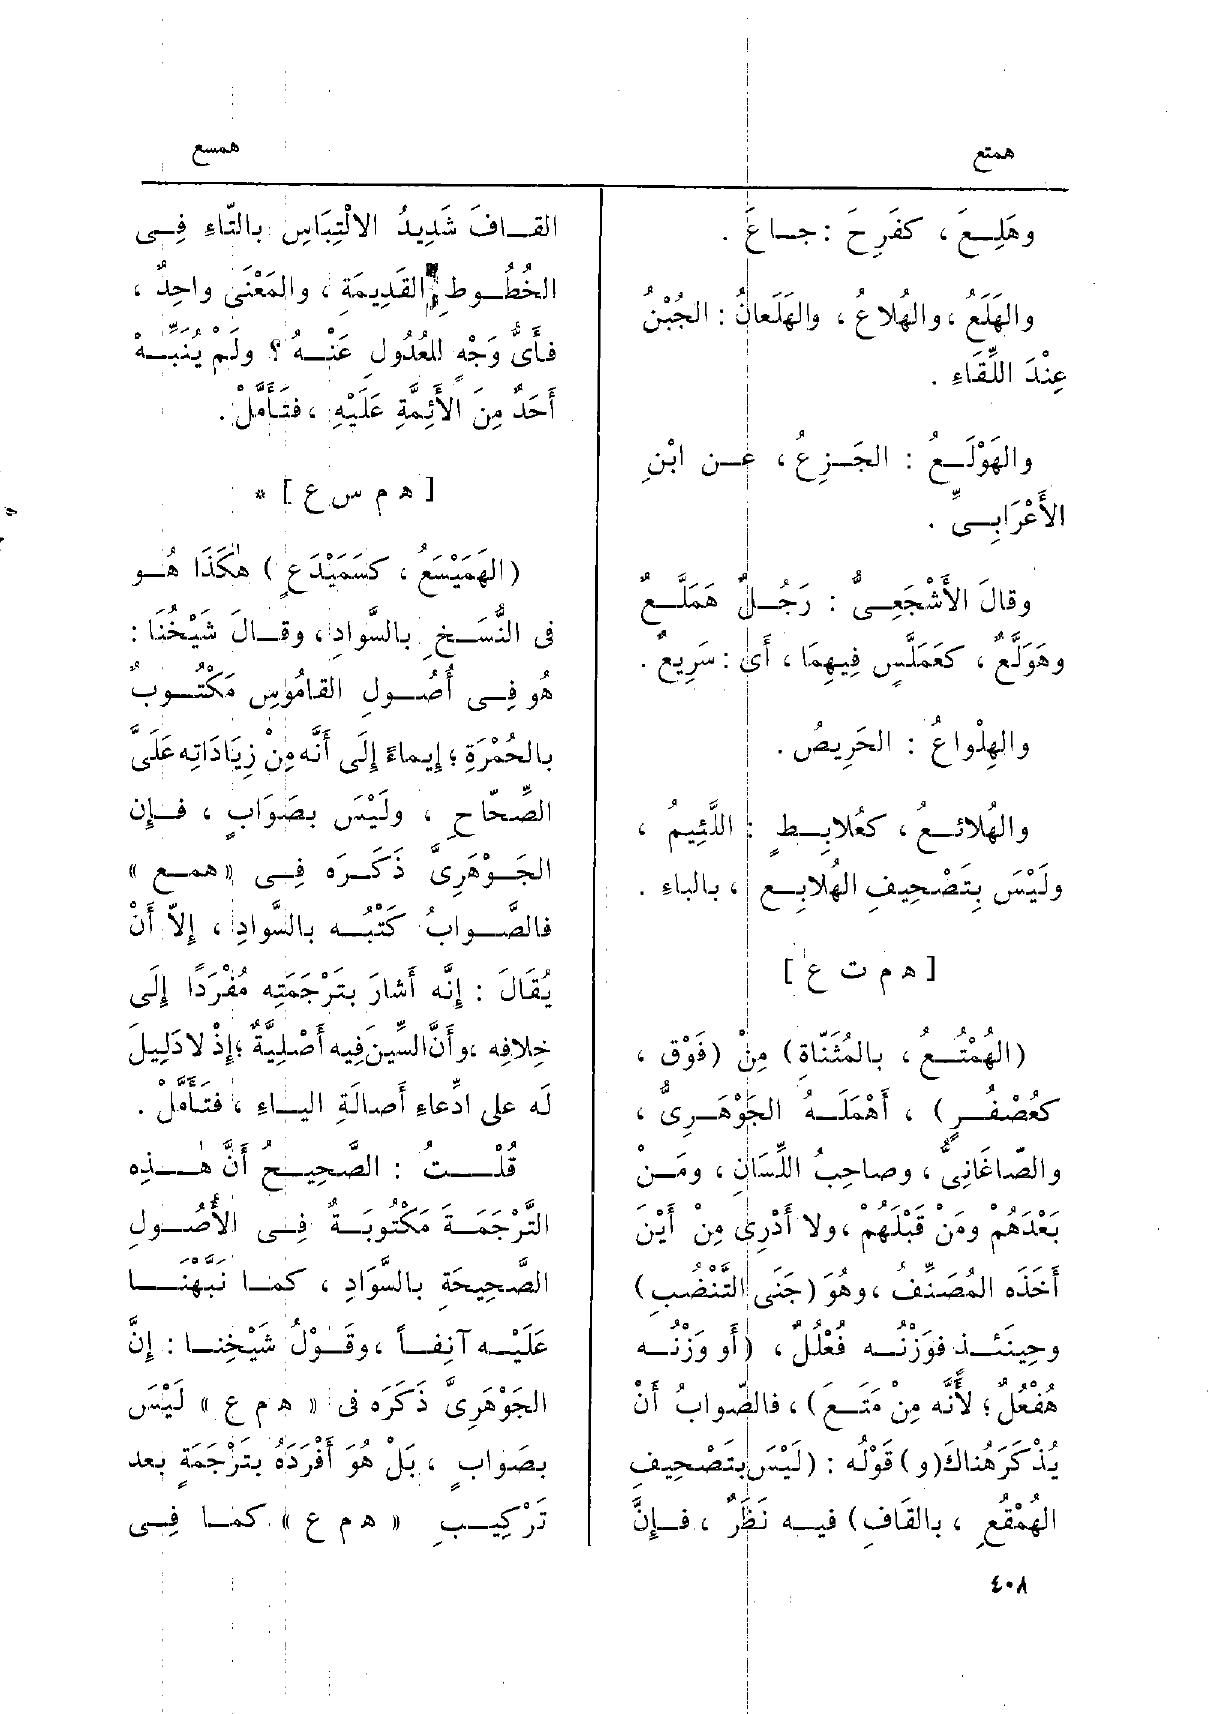 همتع
همسع
وهَلِـعَ ، كفَرِحَ : جـاعَ .
والهَلَعُ ، والهُلاعُ ، والهَلَعانُ : الجُبْنُ
عِنْدَ اللِّقَاءِ .
والهَوْلَـعُ : الجَـزِعُ ، عـن ابْنِ
الأَعْرَابِـىِّ .
وقالَ الأَشْجَعِـىُّ : رَجُـلٌ هَمَلَّـعٌ
وهَوَلَّعٌ ، كعَمَلَّسٍ فِيهِمَا ، أَى : سَرِيعٌ .
والهِلْواعُ : الحَرِيصُ .
والهُلائـعُ ، كعُلابِـطٍ : اللَّئِيمُ ،
ولَيْسَ بِتَصْحِيفِ الهُلابِـعِ ، بالباءِ .
[ ه م ت ع ]
(الهُمْتُـعُ ، بالمُثَنَّاةِ) مِنْ (فَوْق ،
كعُصْفُـرٍ) ، أَهْمَلَـهُ الجَوْهَـرِىُّ ،
والصّاغَانِىُّ ، وصاحِبُ اللِّسَانِ ، ومَـنْ
بَعْدَهُمْ ومَن قَبْلَهُم ، ولا أَدْرِى مِنْ أَيْنَ
أَخَذَه المُصَنِّف ، وهُوَ (جَنَى التَّنْضُبِ)
وحِينَئـذ فوَزْنُـه فُعْلُلٌ ، (أَو وَزْنُـه
هُفْعُلٌ ؛ لأَنَّه مِن مَتَـعَ) ، فالصّوابُ أَنْ
يُذْكَرَ هُناكَ (و) قَوْلُه : (لَيْسَ بتَصْحِيفِ
الهُمْقُعِ ، بالقَافِ) فيـه نَظَرٌ ، فـإِنَّ
القـافَ شَدِيدُ الالْتِبَاسِ بالتّاءِ فِـى
الخُطُـوطِ القَدِيمَةِ ، والمَعْنَى واحِدٌ ،
فأَىُّ وَجْهٍ للعُدُولِ عَنْـهُ ؟ ولَمْ يُنَبِّـهْ
أَحَدٌ مِنَ الأَئِمَّةِ عَلَيْهِ ، فتَأَمَّلْ .
[ ه م س ع ] *
(الهَمَيْسَعُ ، كسَمَيْدَعٍ) هٰكَذَا هُـو
فى النُّسَـخِ بالسَّوادِ ، وقـالَ شَيْخُنَا :
هُو فِـى أُصُـولِ القامُوسِ مَكْتُـوبٌ
بالحُمْرَةِ ؛ إِيماءً إِلَى أَنَّه مِنْ زِيَادَاتِه عَلَى
الصِّحّاحِ ، ولَيْسَ بصَوَابٍ ، فـإِن
الجَـوْهَرِىَّ ذَكَـرَه فِـى « همـع »
فالصَّـوابُ كَتْبُـه بالسَّوادِ ، إِلاّ أَنْ
يُقَالَ : إِنَّه أَشارَ بتَرْجَمَتِه مُفْرَدًا إِلَى
خِلافِه ، وأَنَّ السِّينَ فيه أَصْلِيَّةٌ ؛ إِذْ لا دَلِيلَ
لَه على ادِّعاءِ أَصالَةِ اليـاءِ ، فتَأَمَّلْ .
قُلْـتُ : الصَّحِيـحُ أَنَّ هٰـذِه
التَّرْجَمَـةَ مَكْتُوبَـةٌ فِـى الأُصُـولِ
الصَّحِيحَةِ بالسَّوَادِ ، كمـا نَبَّهْنـا
عَلَيْـه آنِفـاً ، وقَـوْلُ شَيْخِنـا : إِنَّ
الجَوْهَرِىَّ ذَكَرَه فى « ه م ع » لَيْسَ
بصَوابٍ ، بَلْ هُوَ أَفْرَدَهُ بتَرْجَمَةٍ بعد
تَرْكِيـبِ « ه م ع » كمـا فِـى
٤٠٨